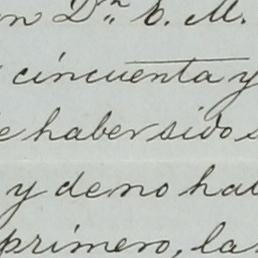 on Dⁿ. E. M.
cincuenta y
e haber sido s
y de no hab
primero, la